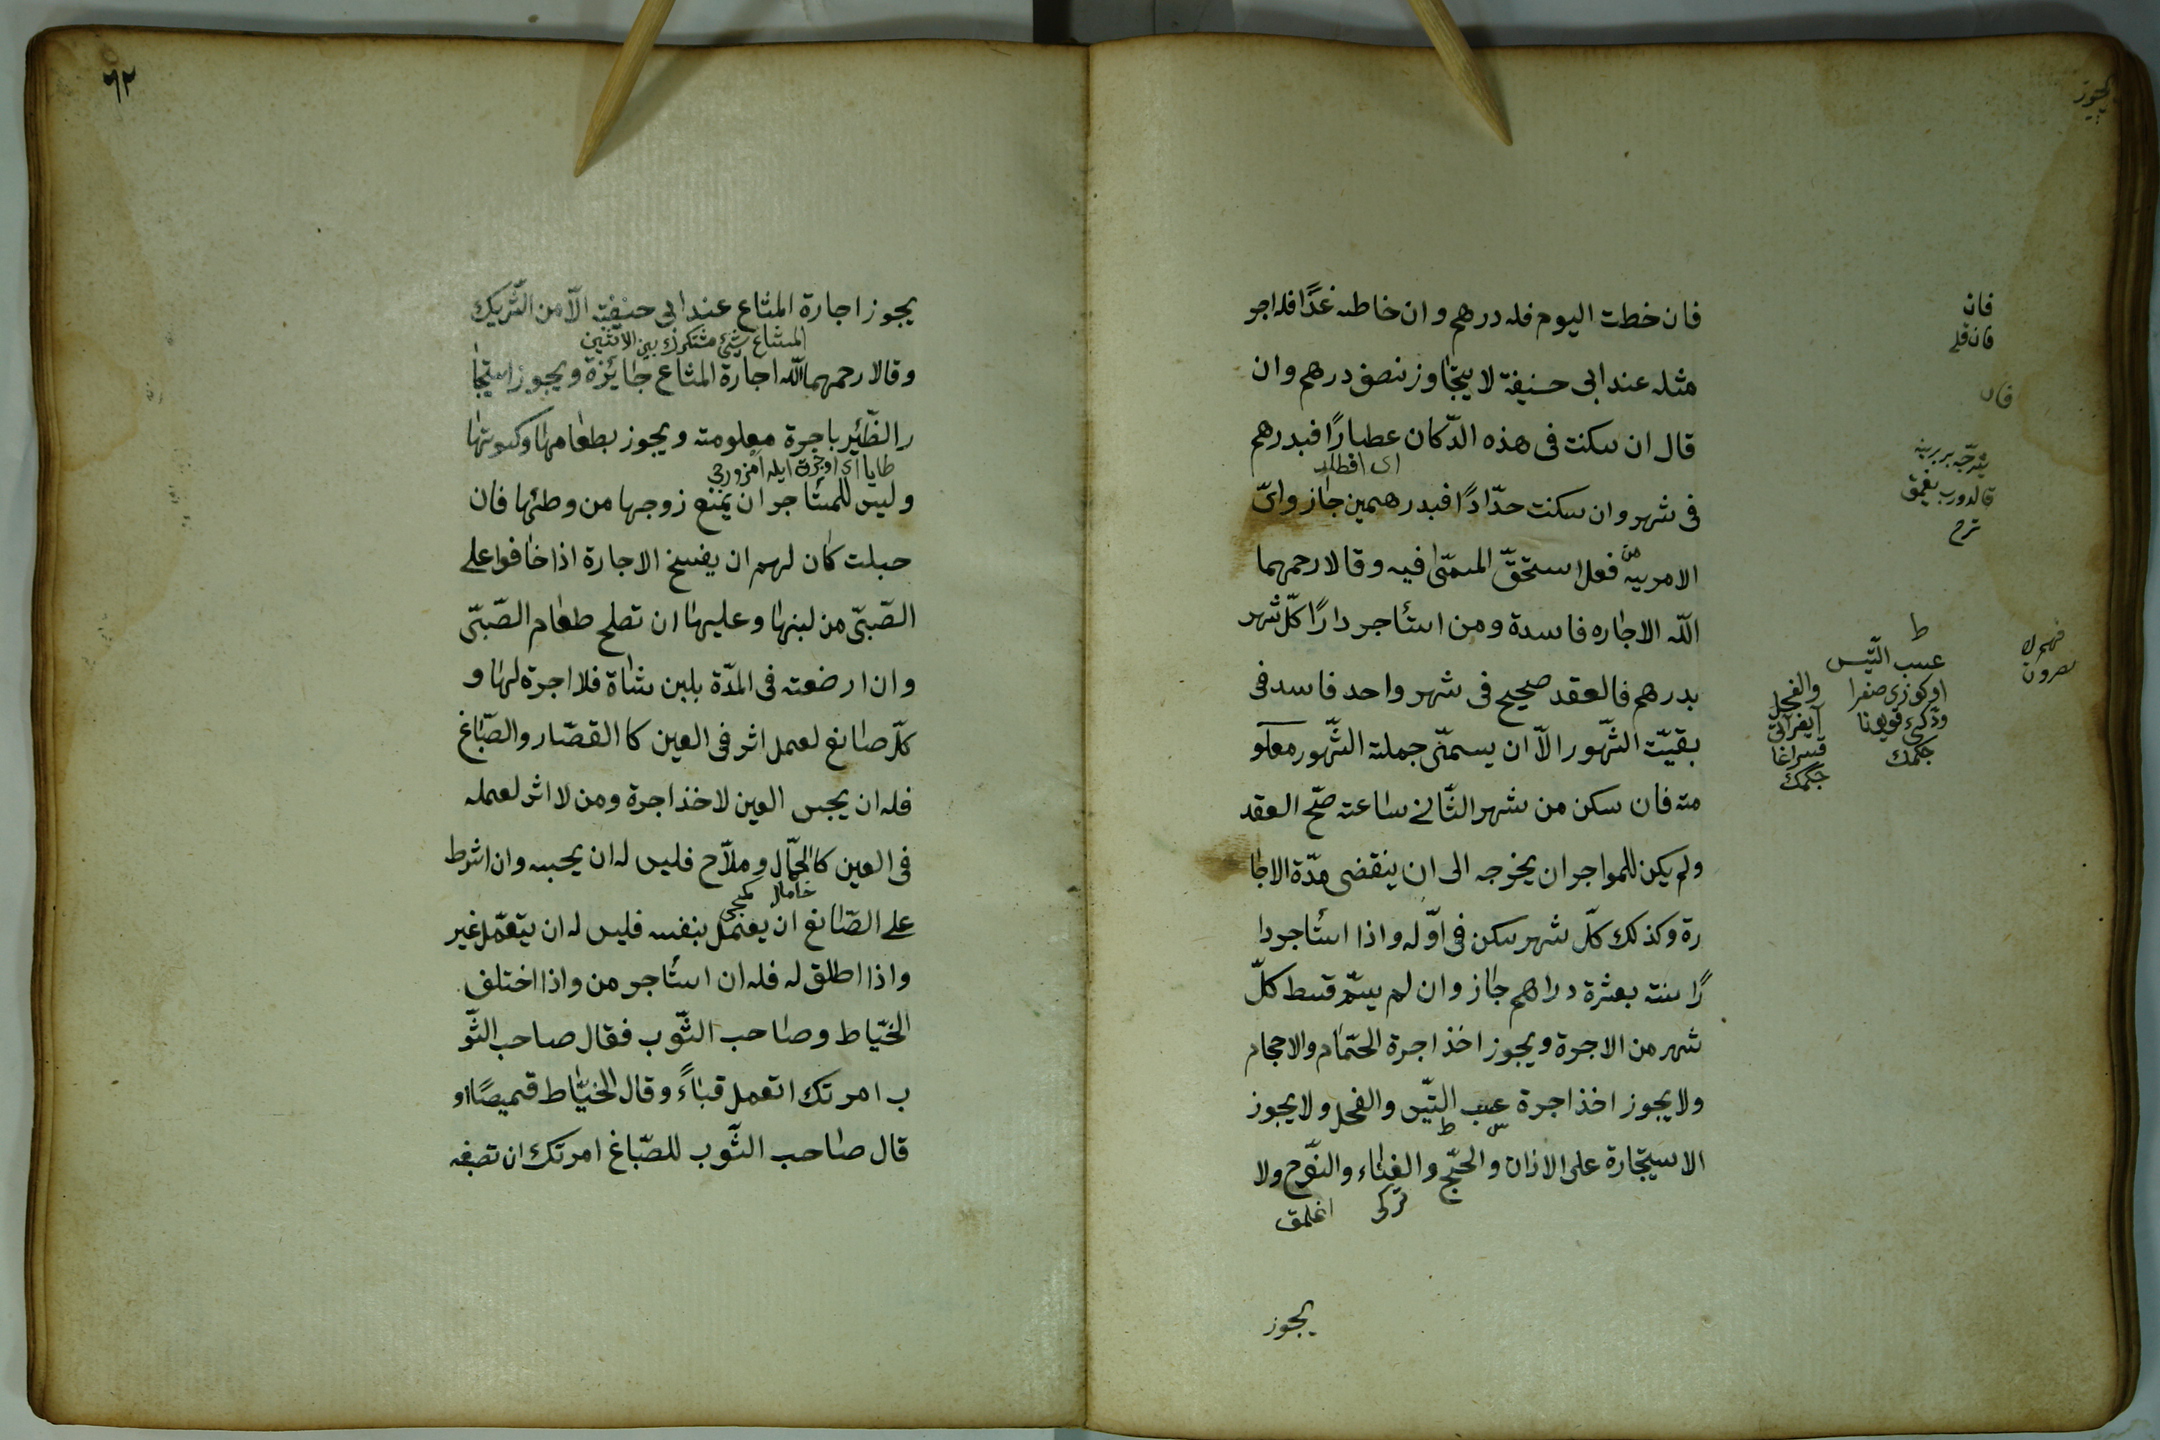 فان خطت اليوم فله درهم وان خاطه غدًا فله اجر
مثله عند ابى حنيفة لا يتجاوز نصف درهم وان
قال ان سكنت فى هذه الدّكان عطارًا فبدرهم
فى شهر وان سكنت حدّادًا فبدرهمين جاز واىّ
الامرين فعل استحقّ المسمّى فيه وقالا رحمهما
اللّه الاجاره فاسدة ومن استأجر دارًا كلّ شهر
بدرهم فالعقد صحيح فى شهر واحد فاسد فى
بقيّة الشّهور الاّ ان يسمّى جملة الشّهور معلو
مة فان سكن من شهر الثّانى ساعة صّح العقد
ولم يكن للمواجر ان يخرجه الى ان ينقضى مدّة الاجا
رة وكذلك كلّ شهر سكن فى اوّله واذا استأجر دا
رًا سنة بعشرة دراهم جاز وان لم يسمّ قسط كلّ
شهر من الاجرة ويجوز اخذ اجرة الحمّام والاحجام
ولا يجوز اخذ اجرة عسب التّيس والفحل ولا يجوز
الاستيجارة على الاذان والحجّ والغناء والنّوح ولا
تركى اغلمق
يجوز
فان
فان قلے
فان
ط
عسب التّيس
والفحل
جكمك
جكمك
يجوز
٦٢
يجوز اجارة المشاع عند ابى حنيفة الاّ من الشّريك
المشاع شيئ مشترك بين الاثنين
وقالا رحمهما اللّه اجارة المشاع جائزة ويجوز استيجا
ر الظّئر باجرة معلومة ويجوز بطعامها وكسوتها
وليس للمستأجر ان يمنع زوجها من وطئها فان
حبلت كان لهم ان يفسخ الاجارة اذا خافوا على
الصّبىّ من لبنها وعليها ان تصلح طعام الصّبىّ
وان ارضعته فى المدّة بلبن شاة فلا اجرة لها و
كلّ صانع لعمل اثر فى العين كا القصّار والصّباغ
فله ان يحبس العين لاخذ اجرة ومن لا اثر لعمله
فى العين كالحمّال وملاّح فليس له ان يحبسه وان اشرط
حامال كمجى
على الصّانع ان يعمل بنفسه فليس له ان يتعمّل غير
واذا اطلق له فله ان استأجر من واذا اختلف
الخيّاط وصاحب الثّوب فقال صاحب الثّو
ب امرتك ا تعمل قباءً وقال الخيّاط قميصًا او
قال صاحب الثّوب للصّباغ امرتك ان تصبغه